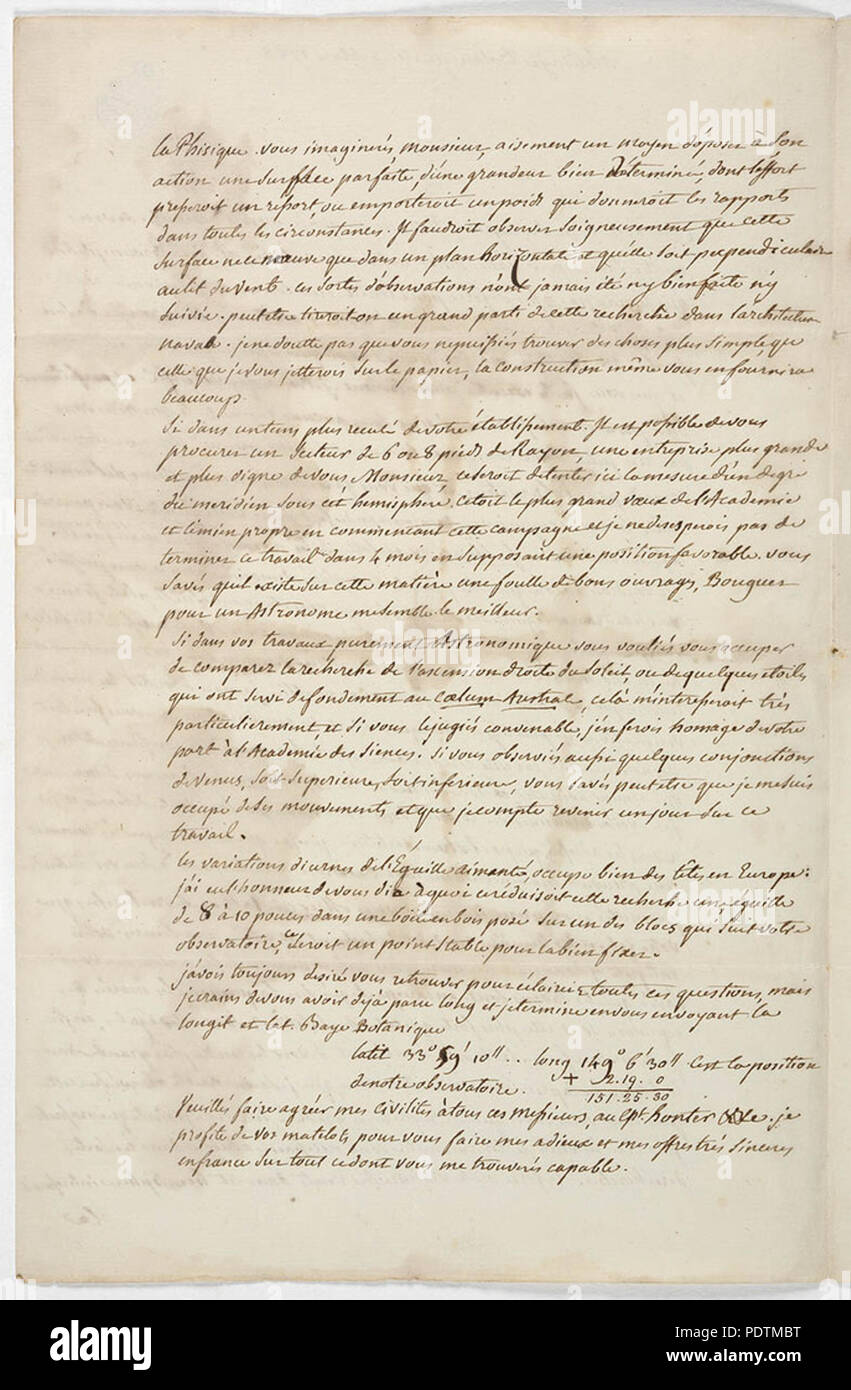 la Phisique. vous imaginerés, Monsieur, aisement un moyen d'époser à Son
action une surfface parfaite, d'une grandeur bien déterminé, dont l'effort
preseroit un resort, ou emporteroit un poids qui donneroit les rapports
dans toutes les circonstances. Il faudroit observer soigneusement que cette
surface ne ce meauve que dans un plan horizontale et quelle soit perpendiculaire
au lit du vent. ces sortes d'observations n'ont jamais été ny bien faite n'y
suivie. peutetre tireroit on un grand parti de cette recherche dans l'architecture
navale. je ne doutte pas que vous ne puissiés trouver des choses plus simple, que
celle que je vous jetterois sur le papier, la construction même vous en fournira
beaucoup.
Si dans un tems plus reculé de votre établissement. Il est possible de vous
procurer un Secteur de 6 ou 8 pieds de Rayon, une entreprise plus grande
et plus digne de vous Monsieur, ce seroit de tenter ici la mesure d'un degré
du meridien sous cet hemisphere. cetoit le plus grand vœux de l'Academie
et le mien propre en commencant cette campagne et je ne desesperois pas de
terminer ce travail dans 4 mois en supposant une position favorable. vous
savés quil existe sur cette matière une foulle de bons ouvrages, Bouguer
pour un Astronome me semble le meilleur.
Si dans vos travaux purement Astronomique vous vouliés vous occuper
de comparer la recherche de l'ascension droite du soleil, ou de quelques etoiles
qui ont servi de fondement au Cœlum Australe, celà m'interesseroit très
particulierement, et si vous le jugiés convenable, j'en ferois homage de votre
part à l'Academie des Siences. si vous observiés aussi quelques conjonctions
de Venus, soit superieure, soit inferieure, vous savés peutetre que je me suis
occupé de ses mouvements et que je compte revenir un jour sur ce
travail.
les variations diurnes de l'Éguille aimanté, occupe bien des têtes en Europe:
j'ai eu l'honneur de vous dire à quoi ce réduisoit cette recherche une éguille
de 8 à 10 pouces dans une boëte en bois posé sur un des blocs qui suit votre
observatoire, ce seroit un point stable pour la bien fixer.
j'avois toujours desiré vous retrouver pour éclaircir toutes ces questions, mais
je crains de vous avoir déjà paru long et je termine en vous envoyant la
longit et lat. Baye Botanique
latit 33° 59' 10" .. long 149° 6' 30" c'est la position
de notre observatoire. + 2. 19. 0
151. 25. 30
Veuillés faire agréer mes civilités à tous ces messieurs, au Cpt. honter &&e. je
profite de vos matelots pour vous faire mes adieux et mes offres trés sinceres
en france sur tout ce dont vous me trouverés capable.
alamy
PDTMBT
www.alamy.com